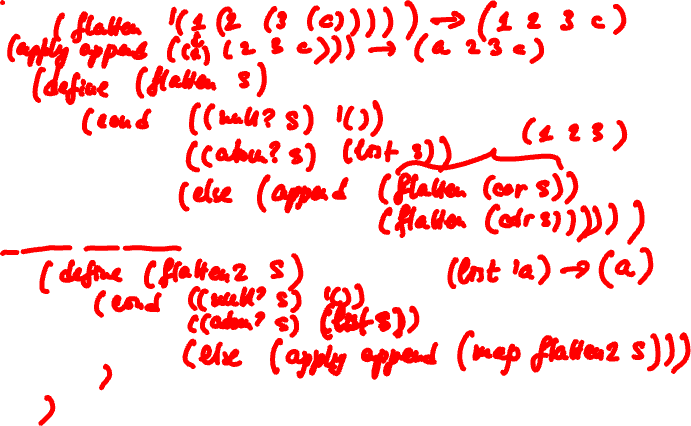 (flatten '(1 (2 (3 (c))))) → (1 2 3 c)
(apply append ((1) (2 3 c))) → (a 2 3 c)
(define (flatten s)
(cond ((null? s) '())
((atom? s) (list s)) (1 2 3)
(else (append (flatten (car s))
(flatten (cdr s))))))
(define (flatten2 s) (list 'a) → (a)
(cond ((null? s) '())
((atom? s) (list s))
(else (apply append (map flatten2 s)))
)
)